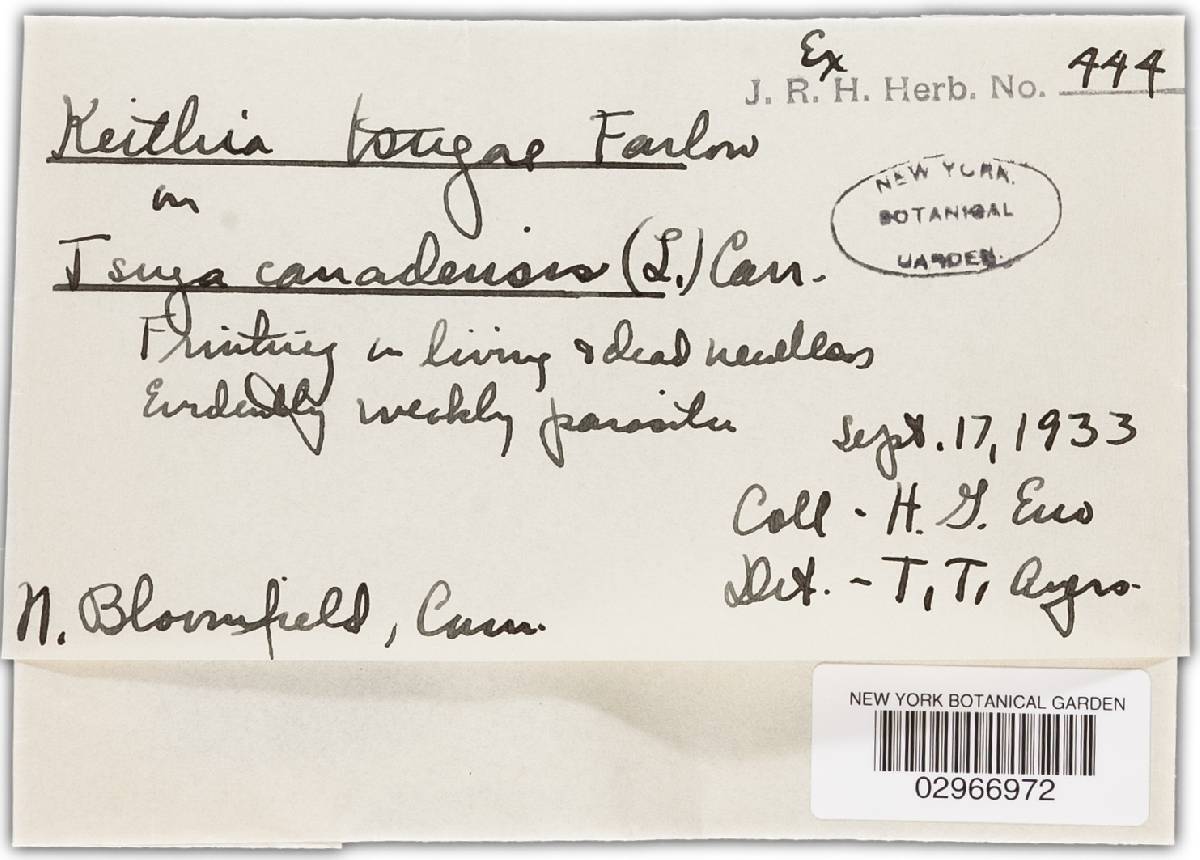 Ex
J. R. H. Herb. No. 444
Keithia tsugae Farlow
NEW YORK
BOTANICAL
GARDEN
on
Tsuga canadensis (L.) Carr.
Fruiting on living & dead needles
Evidently weakly parasitic
Sept. 17, 1933
Coll - H. G. Eno
Det. - T. T. Ayers.
N. Bloomfield, Conn.
NEW YORK BOTANICAL GARDEN
02966972